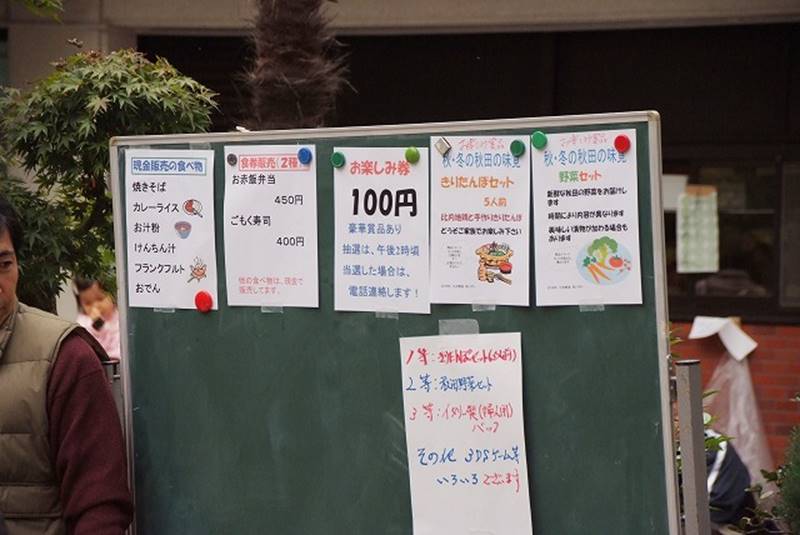 現金販売の食べ物
焼きそば
カレーライス
お汁粉
けんちん汁
フランクフルト
おでん
食券販売(2種
お赤飯弁当
450円
ごもく寿司
400円
他の食べ物は、現金で
販売してます。
お楽しみ券
100円
豪華賞品あり
抽選は、午後2時頃
当選した場合は、
電話連絡します!
秋・冬の秋田の味覚
きりたんぽセット
5人前
比内地鶏と手作りきりたんぽ
どうぞご家族でお楽しみ下さい
秋・冬の秋田の味覚
野菜セット
新鮮な秋田の野菜をお届けし
ます
時間により内容が異なります
美味しい漬物が加わる場合も
あります
1等:きりたんぽセット
2等:秋田野菜セット
3等:イタリー製(婦人用)
バッグ
その他 3DSゲーム等
いろいろございます